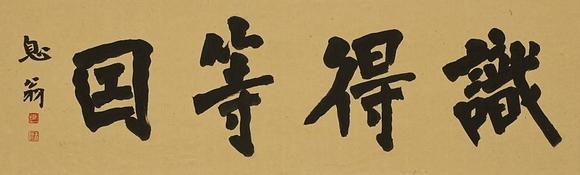 識得等因
息翁